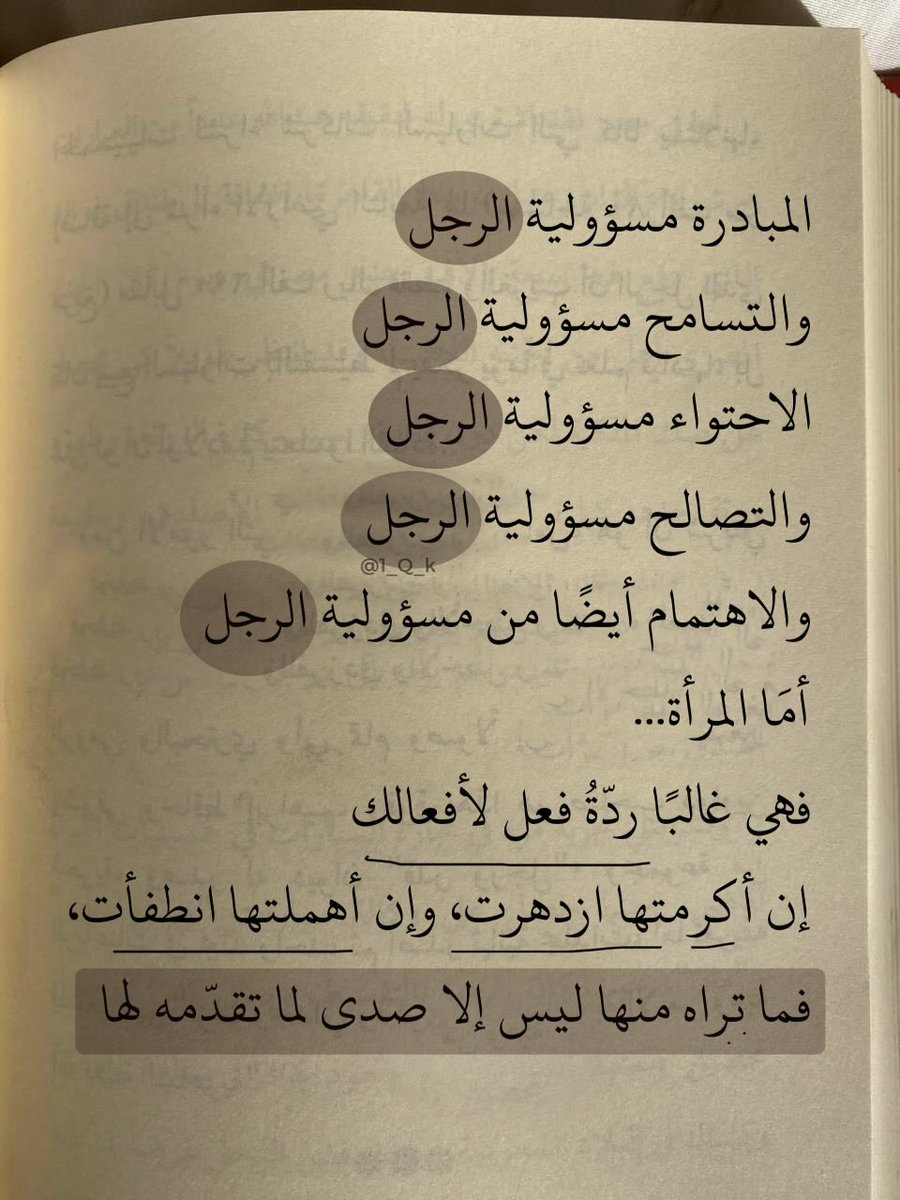 المبادرة مسؤولية الرجل
والتسامح مسؤولية الرجل
الاحتواء مسؤولية الرجل
والتصالح مسؤولية الرجل
@1_Q_k
والاهتمام أيضًا من مسؤولية الرجل
أمَا المرأة...
فهي غالبًا ردّةُ فعل لأفعالك
إن أكرمتها ازدهرت، وإن أهملتها انطفأت،
فما تراه منها ليس إلا صدى لما تقدّمه لها